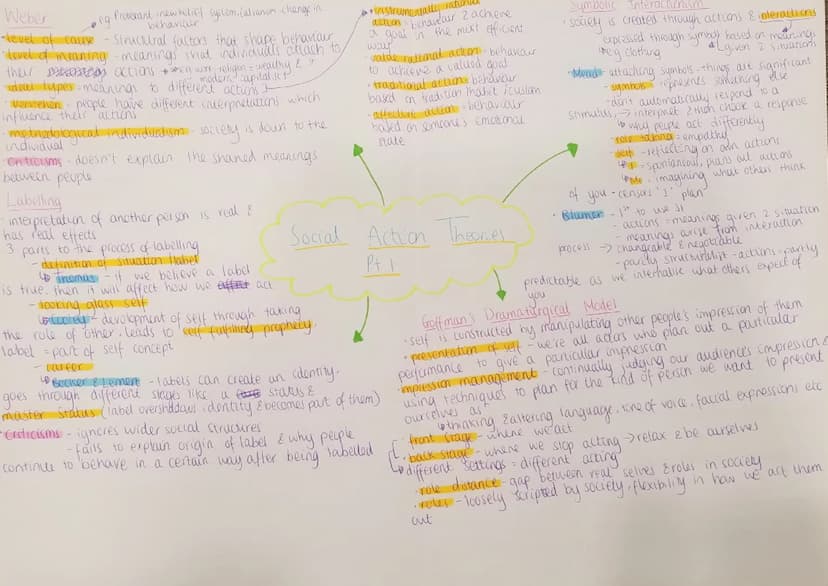 Weber
eg Protestant - new belief system, Calvinism change in
behaviour
- level of cause - structural factors that shape behaviour
- level of meaning - meanings that individuals attach to
their actions
eg work religion - wealthy &
modern capitalist
- ideal types - meanings to different actions
- verstehen - people have different interpretations which
influence their actions
- methodological individualism - society is down to the
individual
Criticisms - doesn't explain the shared meanings
between people
- instrumentally rational
action - behaviour 2 achieve
a goal in the most efficient
way
- value rational action - behaviour
to achieve a valued goal
- traditional action - behaviour
based on tradition/habit/custom
- affective action - behaviour
based on someone's emotional
state
Symbolic Interactionism
- society is created through actions & interactions
expressed through symbols based on meanings
eg clothing
given 2 situations
- Mead - attaching symbols - things are significant
- symbols - represents something else
- don't automatically respond to a
stimulus, → interpret & then choose a response
why people act differently
- role taking = empathy
- self - reflecting on own actions
- I - spontaneous, plans out actions
- Me - imagining what others think
of you - censors 'I' plan
- Blumer - 1st to use SI
- actions = meanings given 2 situation
- meanings arise from interaction
process → changeable & negotiable
- partly structuralist - actions = partly
predictable as we internalise what others expect of
you
Social Action Theories
Pt 1
Labelling
- interpretation of another person is real &
has real effects
3 parts to the process of labelling
- definition of situation/label
Thomas - if we believe a label
is true, then it will affect how we act
- looking glass self
Cooley - development of self through taking
the role of other, leads to self fulfilling prophecy,
label = part of self concept
- career
Becker & Lemert - labels can create an identity -
goes through different stages like a status &
master status (label overshadows identity & becomes part of them)
- Criticisms - ignores wider social structures
- fails to explain origin of label & why people
continue to behave in a certain way after being labelled
Goffman's Dramaturgical Model
- self is constructed by manipulating other people's impression of them
- presentation of self - we're all actors who plan out a particular
performance to give a particular impression
- impression management - continually judging our audiences impression &
using techniques to plan for the kind of person we want to present
ourselves as
thinking & altering language, tone of voice, facial expressions etc
- front stage - where we act
- back stage - where we stop acting → relax & be ourselves
different settings = different acting
- role distance - gap between real selves & roles in society
- roles - loosely scripted by society, flexibility in how we act them
out